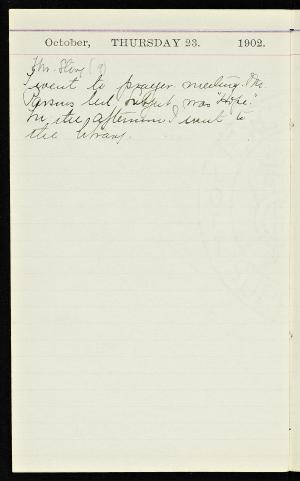 October, THURSDAY 23. 1902.
Mr. Stone (?)
I went to prayer meeting. Mr.
Parsons led subject was "Hope."
In the afternoon I went to
the library.